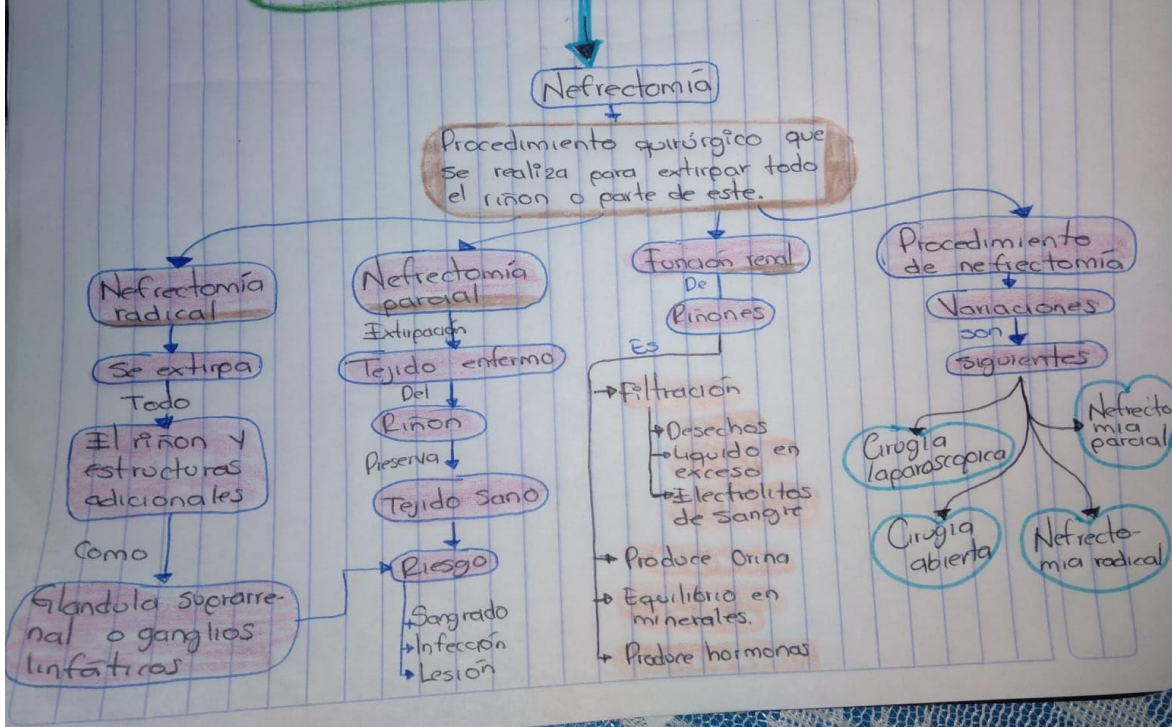 Nefrectomía
Procedimiento quirúrgico que
se realiza para extirpar todo
el riñon o parte de este.
Nefrectomía
radical
Se extirpa
Todo
El riñon y
estructuras
adicionales
Como
Glandula suprarre-
nal o ganglios
linfáticos
Nefrectomía
parcial
Extirpación
Tejido enfermo
Del
Riñon
Preserva
Tejido Sano
Riesgo
Sangrado
Infección
Lesión
Función renal
De
Riñones
Es
Filtración
Desechos
Liquido en
exceso
Electrolitos
de sangre
Produce Orina
Equilibrio en
minerales.
Produce hormonas
Procedimiento
de nefrectomía
Variaciones
son
siguientes
Cirugía
laparoscopica
Cirugia
abierta
Nefrecto-
mia radical
Nefrecto
mia
parcial